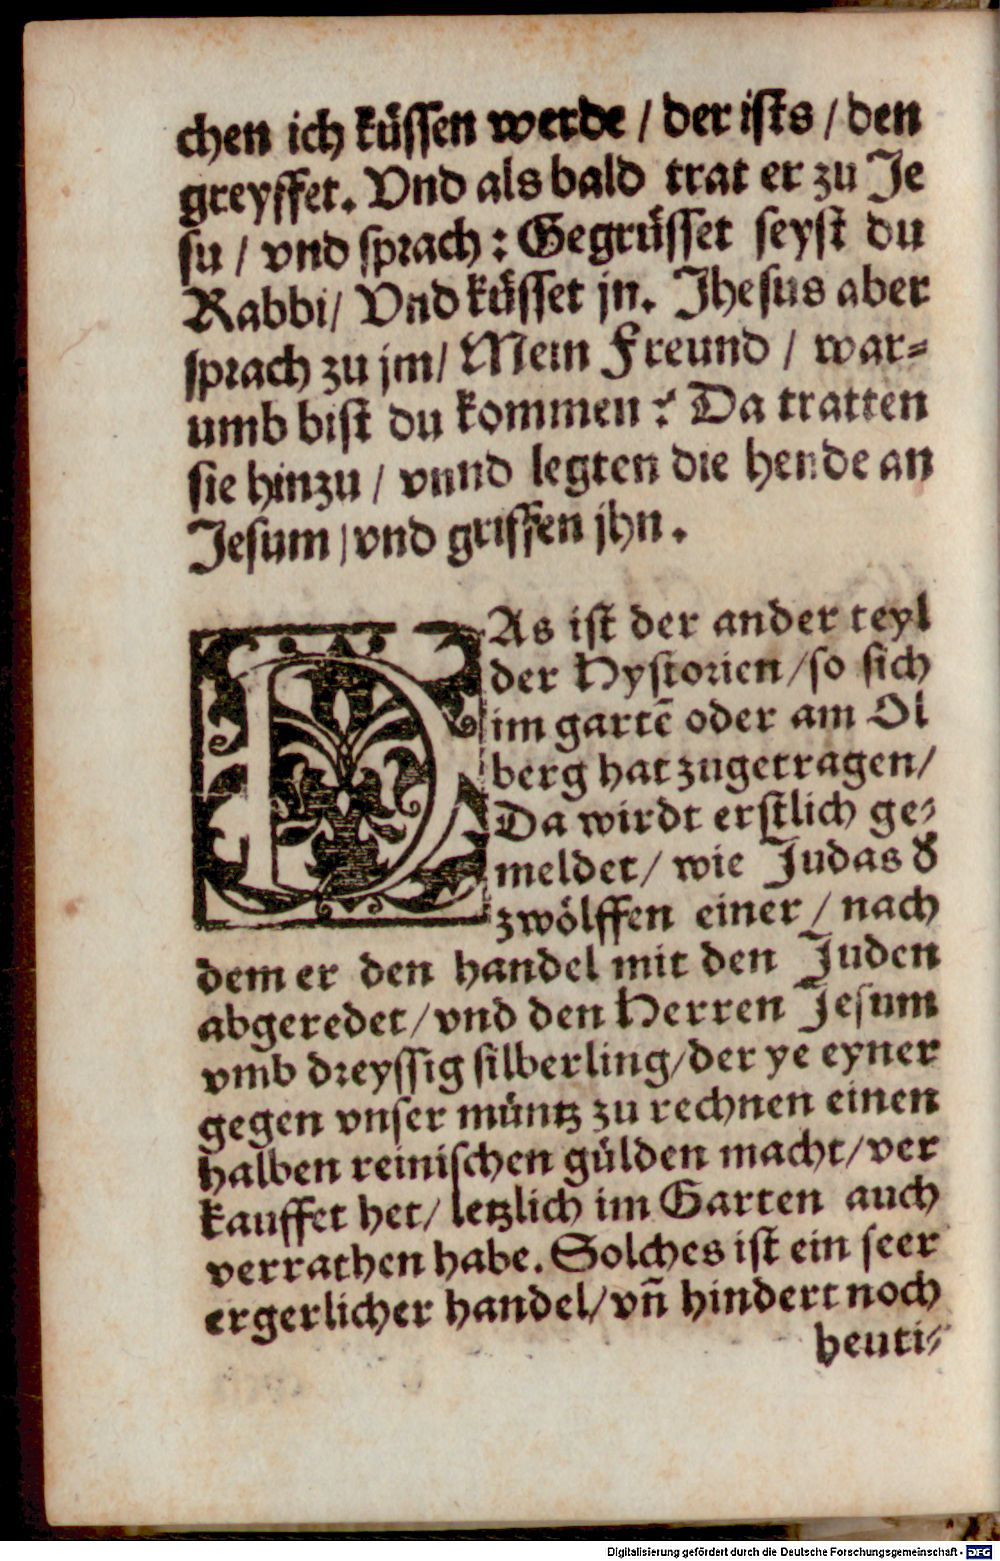 chen ich küssen werde / der ists / den
greyffet. Vnd als bald trat er zu Je
su / vnd sprach : Gegrüsset seyst du
Rabbi / Vnd küsset jn. Jhesus aber
sprach zu jm / Mein Freund / war=
umb bist du kommen ? Da tratten
sie hinzu / vnnd legten die hende an
Jesum / vnd griffen jhn.
DAs ist der ander teyl
der Hystorien / so sich
im gartē oder am Öl
berg hat zugetragen /
Da wirdt erstlich ge=
meldet / wie Judas d
zwölffen einer / nach
dem er den handel mit den Juden
abgeredet / vnd den Herren Jesum
vmb dreyssig silberling / der ye eyner
gegen vnser müntz zu rechnen einen
halben reinischen gülden macht / ver
kauffet het / letzlich im Garten auch
verrathen habe. Solches ist ein seer
ergerlicher handel / vñ hindert noch
heuti=
Digitalisierung gefördert durch die Deutsche Forschungsgemeinschaft - DFG